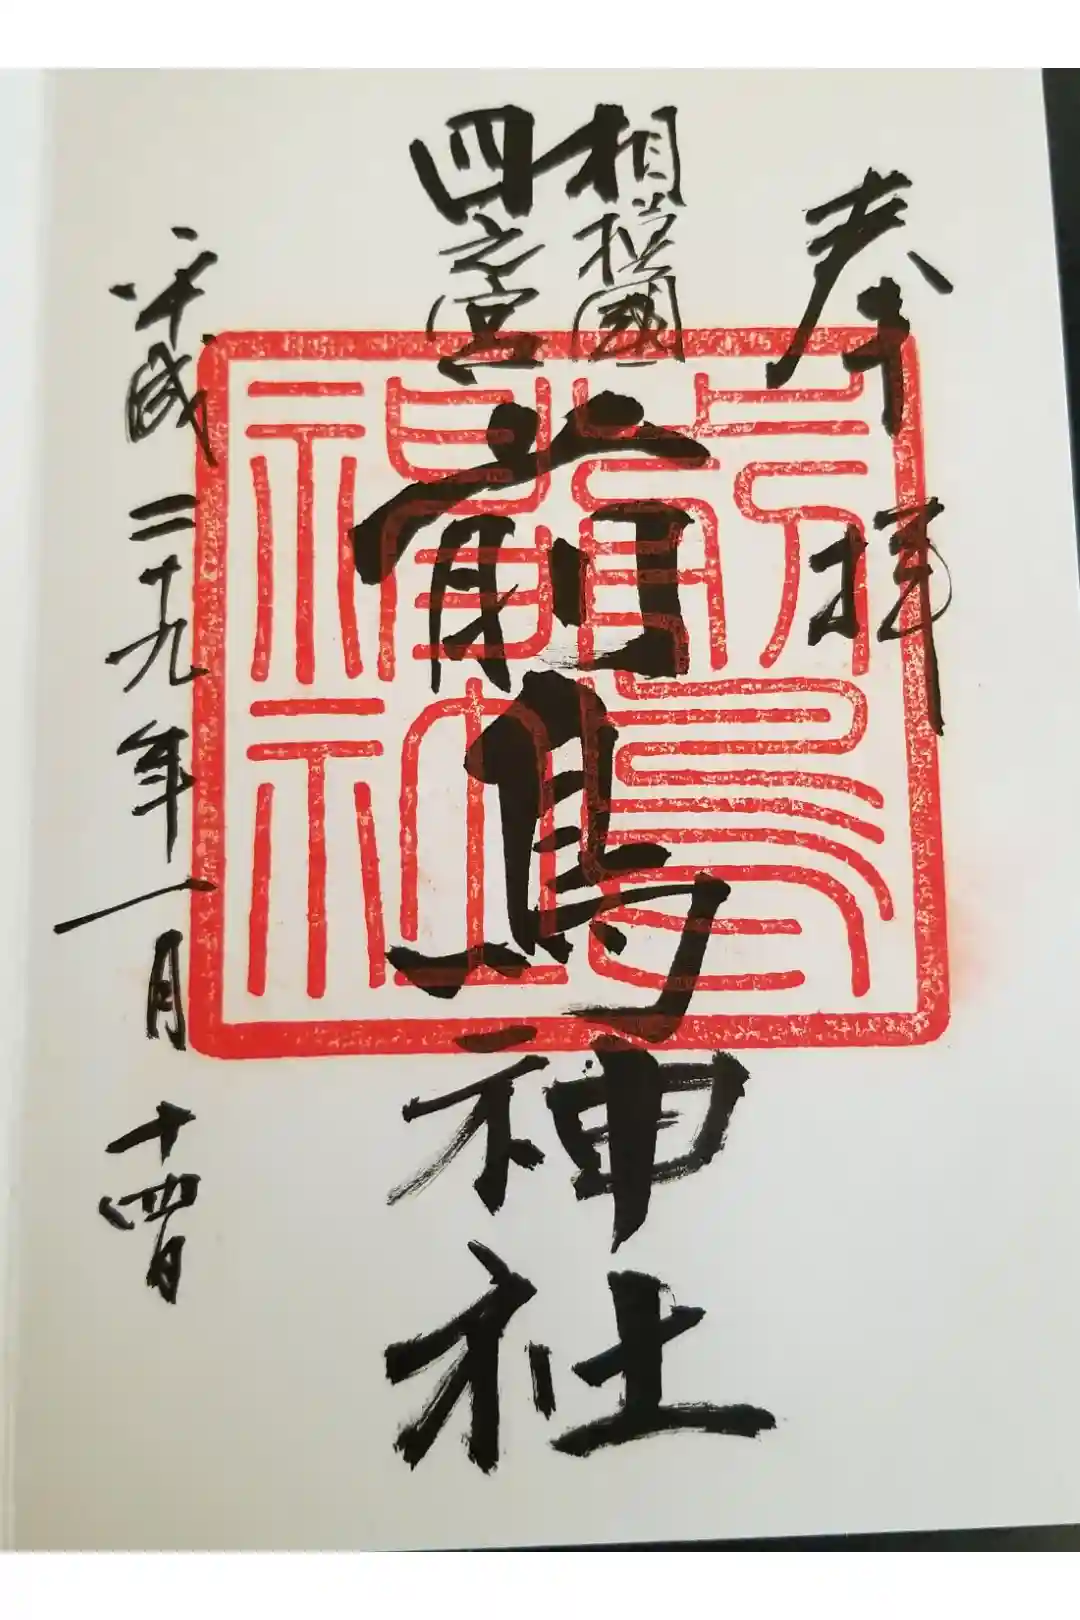 奉拝
相模國
四之宮
前鳥神社
平成二十九年一月十四日
前鳥神社